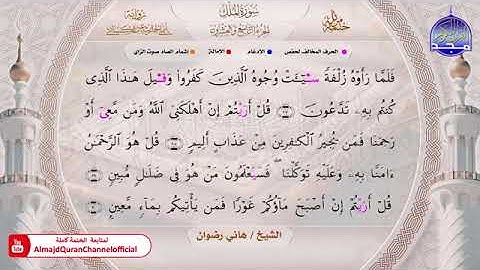 سُورَةُ الْمُلْكِ
الجزء التاسع والعشرون
الحرف المخالف لحفص الادغام الامالة إشمام الصاد صوت الزاي
فَلَمَّا رَأَوْهُ زُلْفَةً سِيٓـَٔتْ وُجُوهُ ٱلَّذِينَ كَفَرُوا۟ وَقِيلَ هَٰذَا ٱلَّذِى
كُنتُم بِهِۦ تَدَّعُونَ قُلْ أَرَيْتُمْ إِنْ أَهْلَكَنِىَ ٱللَّهُ وَمَن مَّعِى أَوْ
رَحِمَنَا فَمَن يُجِيرُ ٱلْكَٰفِرِينَ مِنْ عَذَابٍ أَلِيمٍ قُلْ هُوَ ٱلرَّحْمَٰنُ
ءَامَنَّا بِهِۦ وَعَلَيْهِ تَوَكَّلْنَا فَسَيَعْلَمُونَ مَنْ هُوَ فِى ضَلَٰلٍ مُّبِينٍ
قُلْ أَرَيْتُمْ إِنْ أَصْبَحَ مَآؤُكُمْ غَوْرًا فَمَن يَأْتِيكُم بِمَآءٍ مَّعِينٍ
الشيخ / هاني رضوان
لمتابعة الختمة كاملة
AlmajdQuranChannelofficial